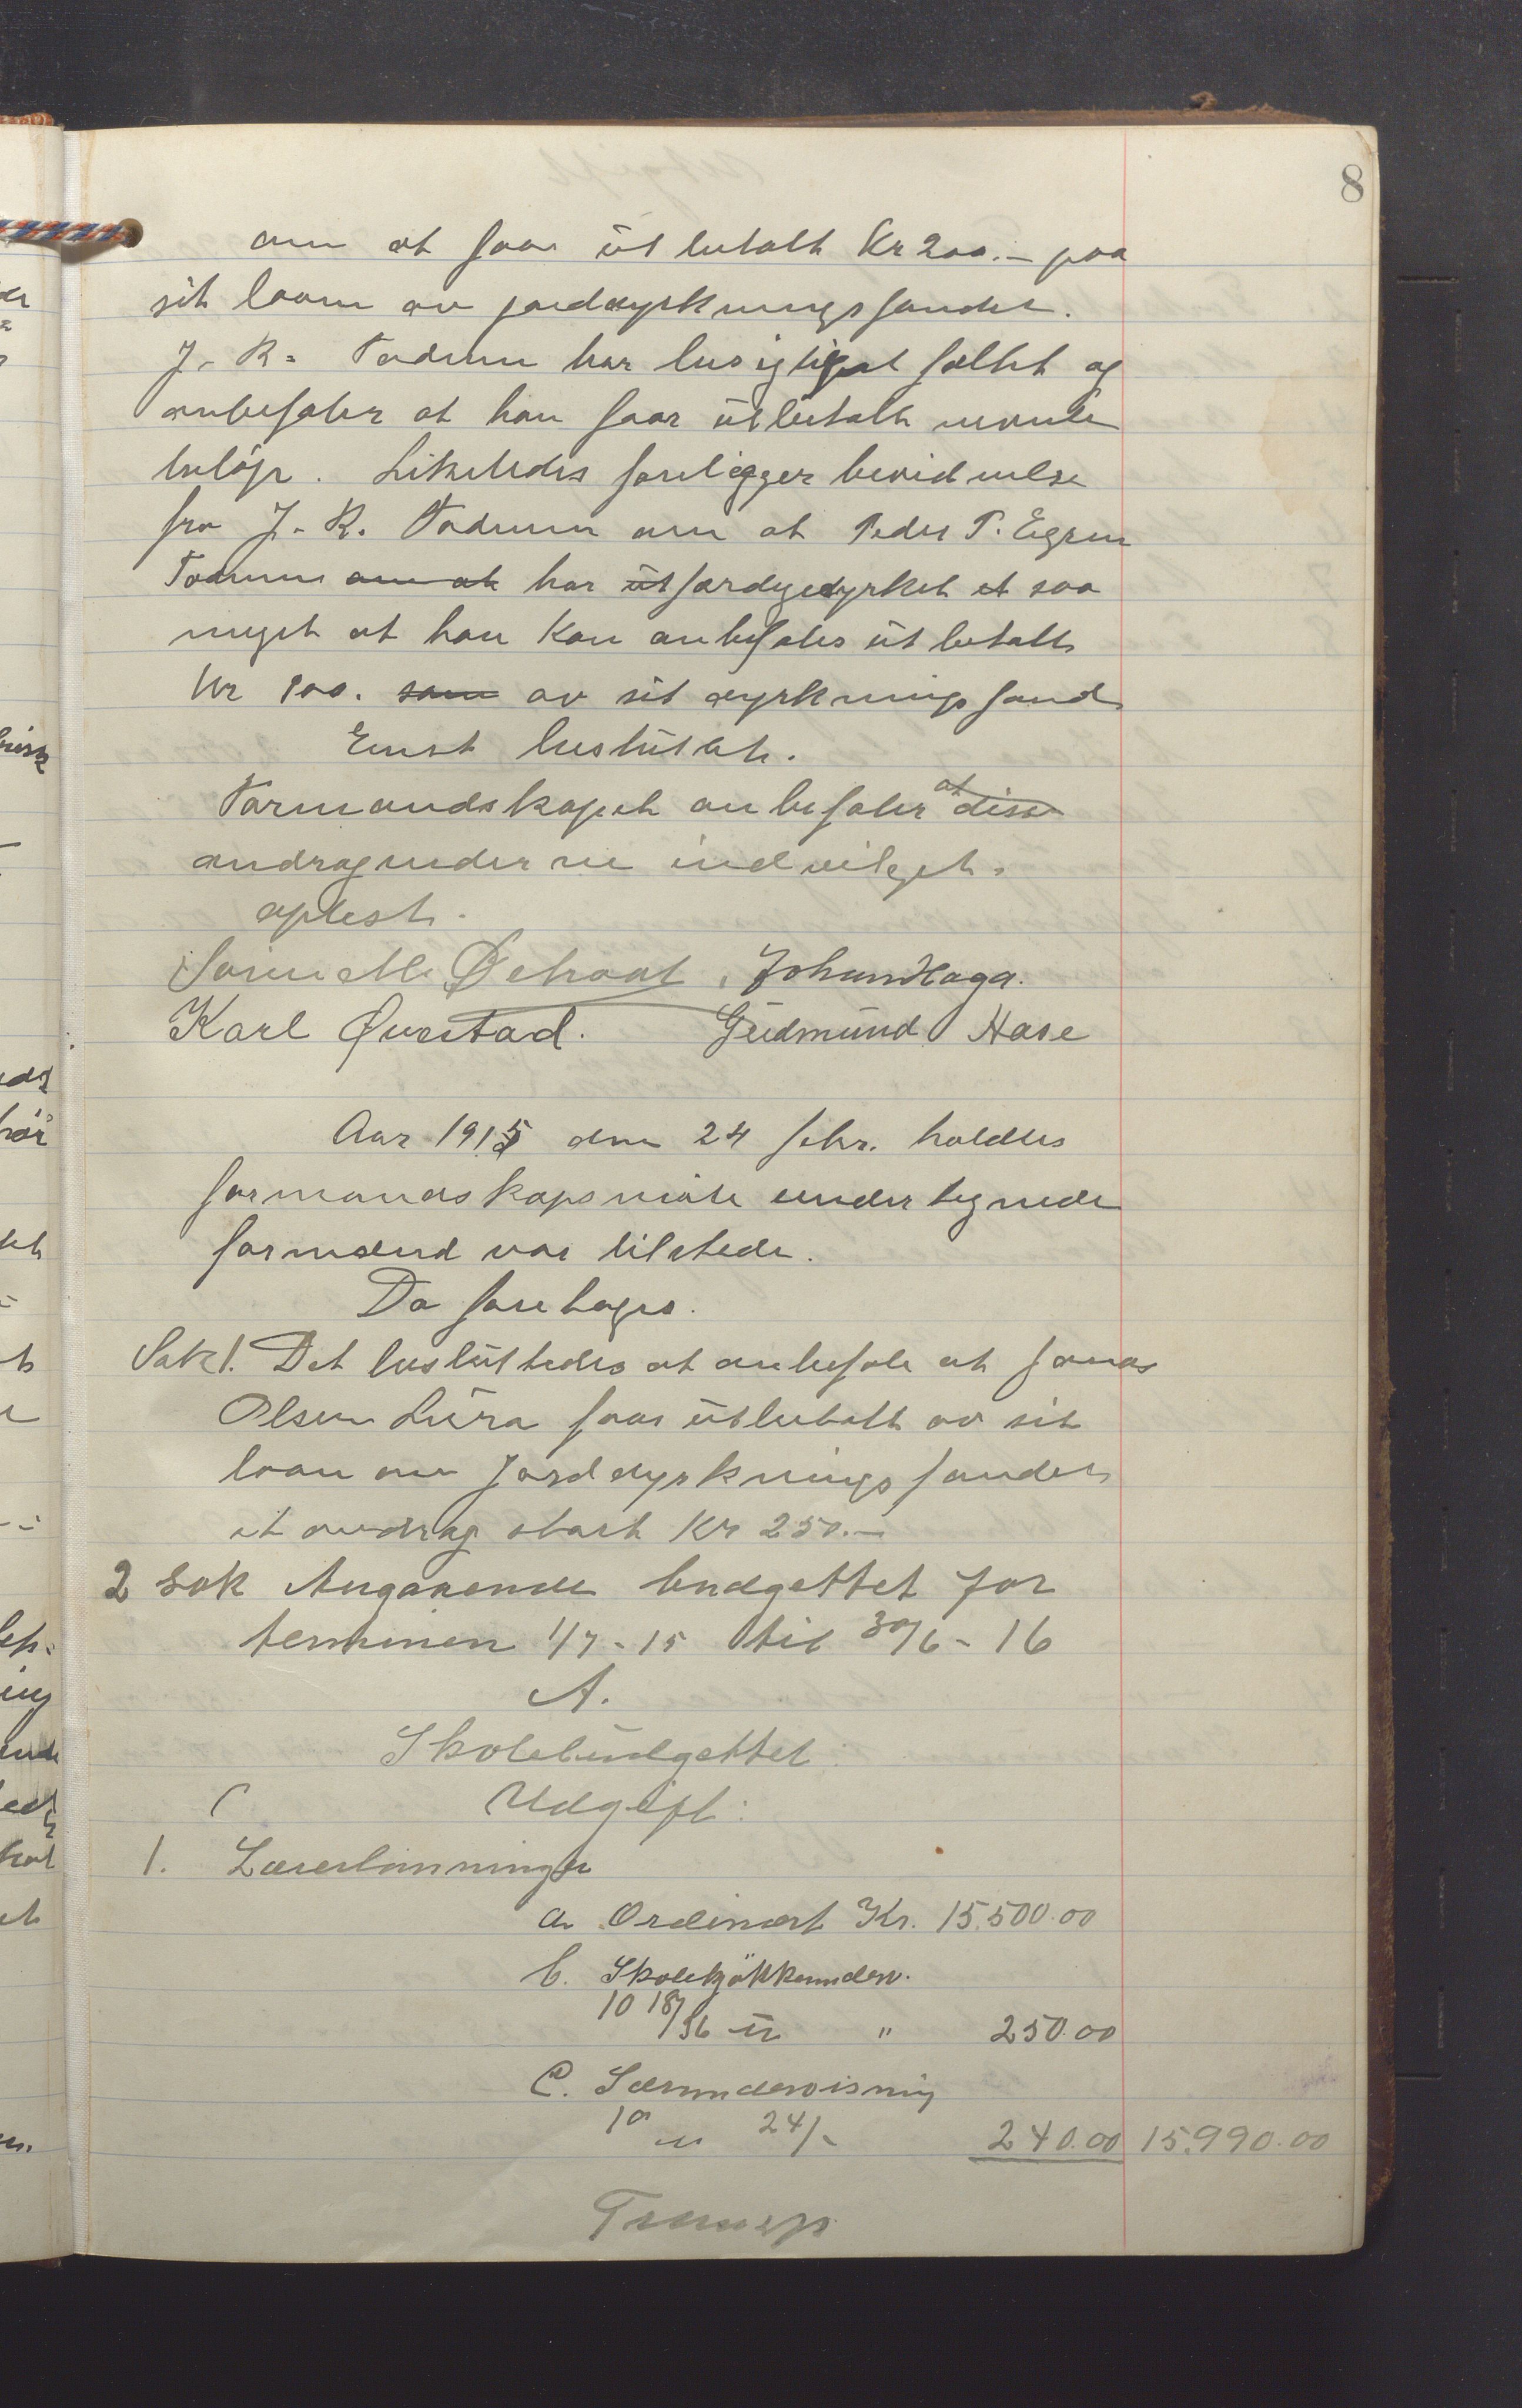 8
om at faa utbetalt Kr 200.– paa
sit laan av jorddyrkningsfondet.
J. R. Todnem har besigtiget feltet og
anbefaler at han faar utbetalt nevnte
beløp. Likeledes foreligger bevidnelse
fra J. R. Todnem om at Peder T.
Todnem om at har ut færdigdyrket et saa
meget at han kan anbefales utbetalt
Kr 100. som av sit dyrkningsfond
Enst besluttet.
Formandskapet anbefaler at disse
andragenderne indvilget.
oplest.
Johan Haga.
Karl Qverstad. Gudmund Hove
Aar 1915 den 24 febr. holdtes
formandskapsmøte undertegnede
formænd var tilstede.
Da foretoges.
Sak 1. Det besluttedes at anbefale at Jonas
Olsen Lura faar utbetalt av sit
laan av Jorddyrkningsfondet
et avdrag stort Kr 250.–
2 Sak Angaaende budgettet for
terminen 1/7 - 15 til 30/6 - 16
A.
Skolebudgettet:
Udgift:
1. Lærerlønninger
a Ordinært Kr. 15,500.00
b. Skolekjøkkenunderv.
10 18/36 u " 250.00
C. Særundervisning
10 u 24/- 240.00 15,990.00
Transp.